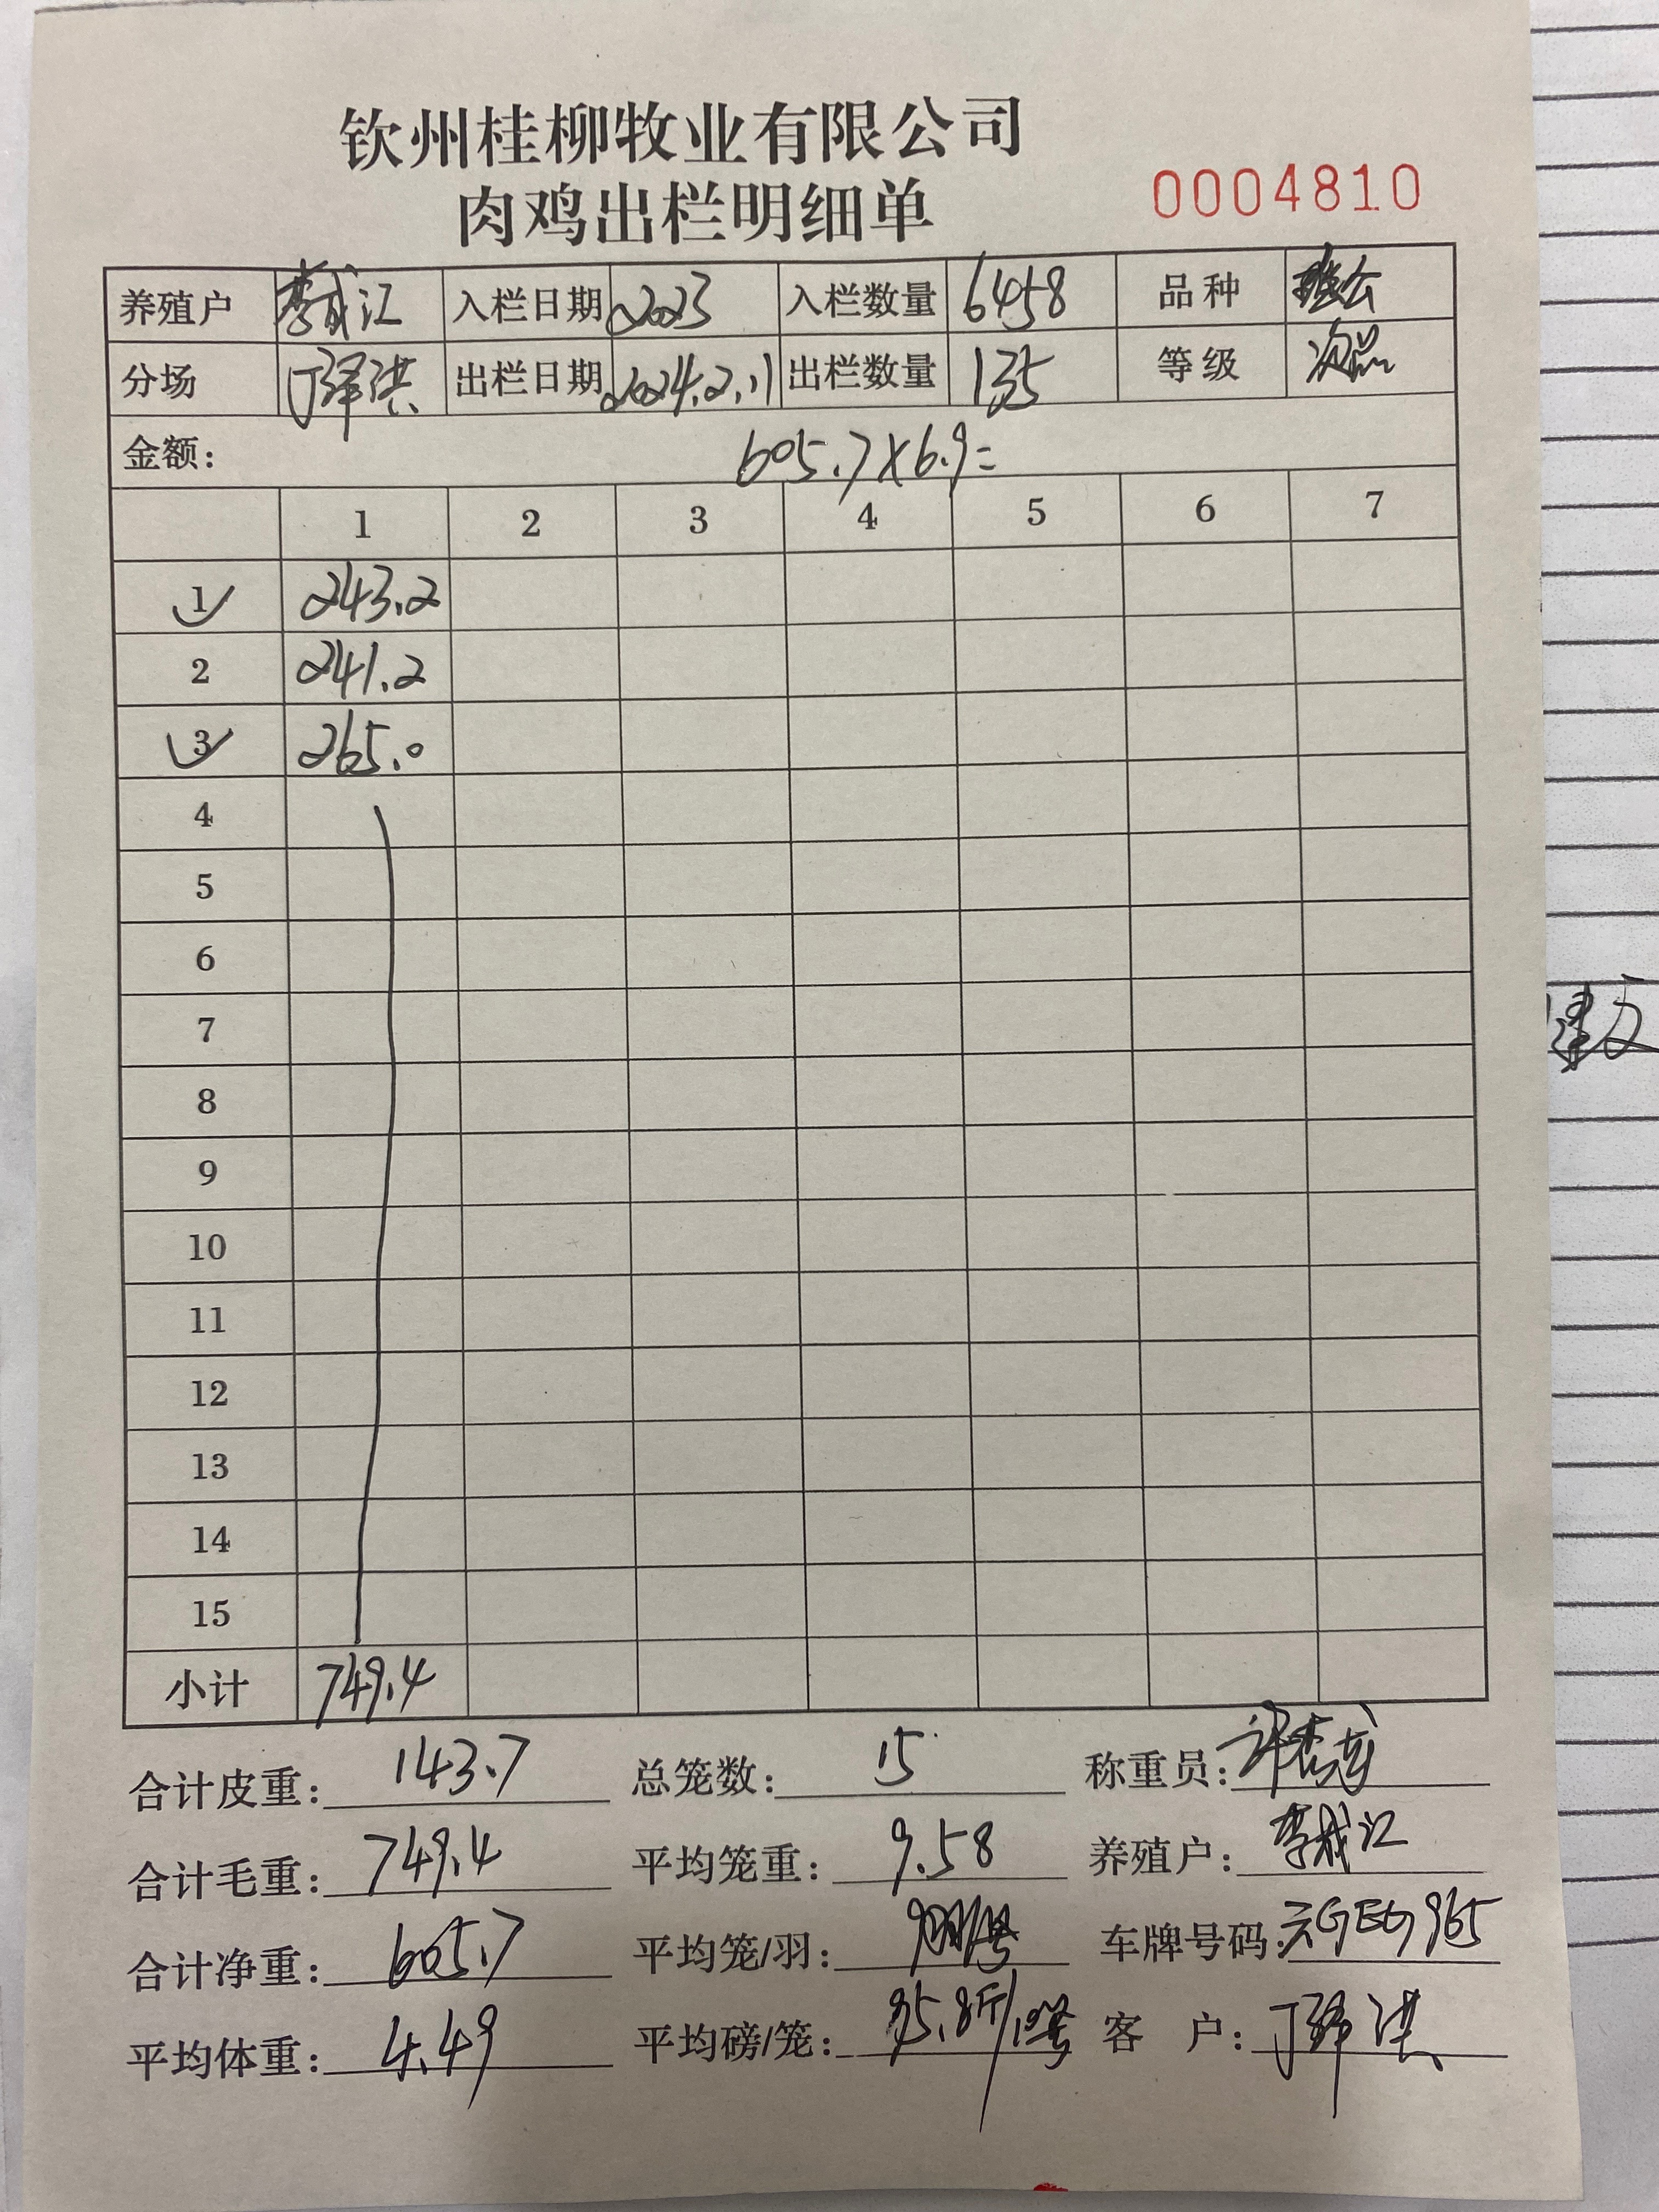 钦州桂柳牧业有限公司
肉鸡出栏明细单
0004810
养殖户 李成江 入栏日期 2023 入栏数量 6458 品种
分场 丁泽洪 出栏日期 2024.2.11 出栏数量 135 等级 次品
金额: 605.7×6.9=
1 2 3 4 5 6 7
1 243.2
2 241.2
3 265.0
4
5
6
7
8
9
10
11
12
13
14
15
小计 749.4
合计皮重: 143.7 总笼数: 15 称重员:
合计毛重: 749.4 平均笼重: 9.58 养殖户: 李成江
合计净重: 605.7 平均笼/羽: 车牌号码: GEG965
平均体重: 4.49 平均磅/笼: 95.8斤/10 客 户: 丁泽洪